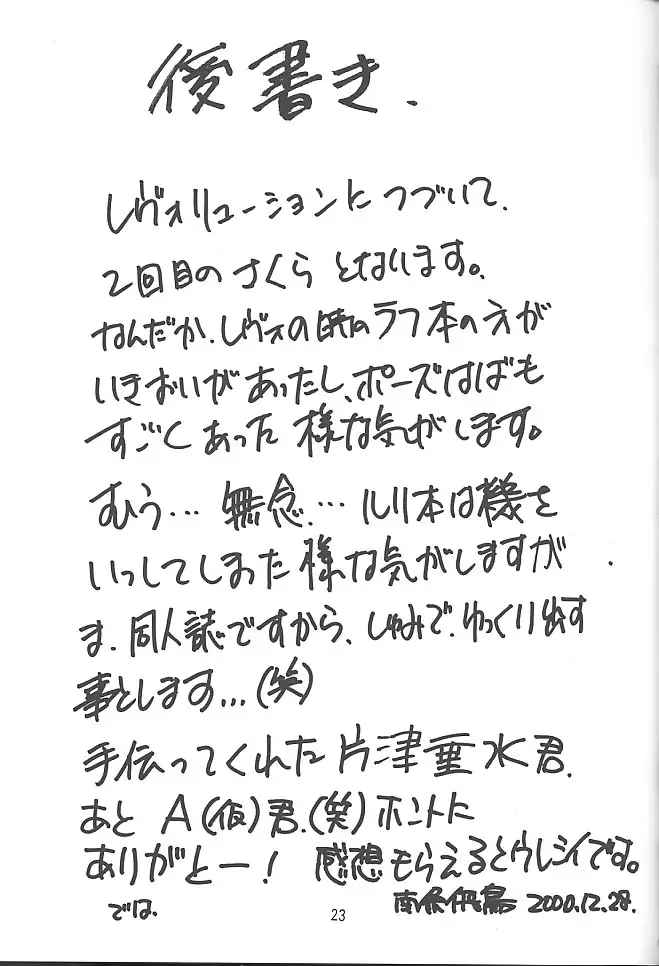 後書き.
レヴォリューションにつづいて.
2回目のさくらとなります。
なんだか.レヴォの時のラフ本の方が
いきおいがあったし、ポーズはばも
すごくあった様な気がします。
むう… 無念.… ルリ本は機を
いっしてしまった様な気がしますが
ま.同人誌ですから、しゅみで.ゆっくり出す
事とします…(笑)
手伝ってくれた片津垂水君.
あと A(仮)君.(笑)ホントに
ありがとー! 感想もらえるとウレシイです。
では. 2000.12.28.
23